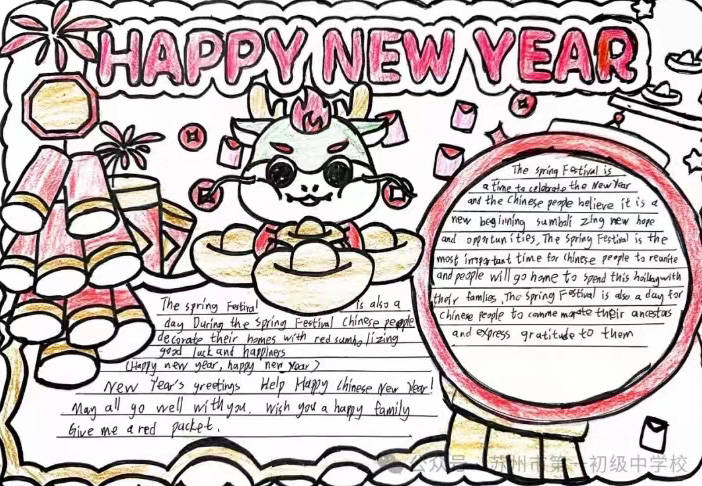 HAPPY NEW YEAR
The Spring Festival is
a time to celebrate the New Year
and the Chinese people believe it is a
new beginning sumboli zing new hope
and opprtunities. The Spring Festival is the
most important time for Chinese people to reunite
and people will go home to spend this holiday with
their families. The Spring Festival is also a day for
Chinese people to comme morate their ancestors
and express gratitude to them
The Spring Festival is also a
day During the Spring Festival Chinese people
decorate their homes with red sumbo lizing
good luck and happiners
(Happy new year, happy new year)
New Year's greetings Help Happy Chinese New Year!
May all go well with you. Wish you a happy family
Give me a red packet.
公众号 苏州市第一初级中学校